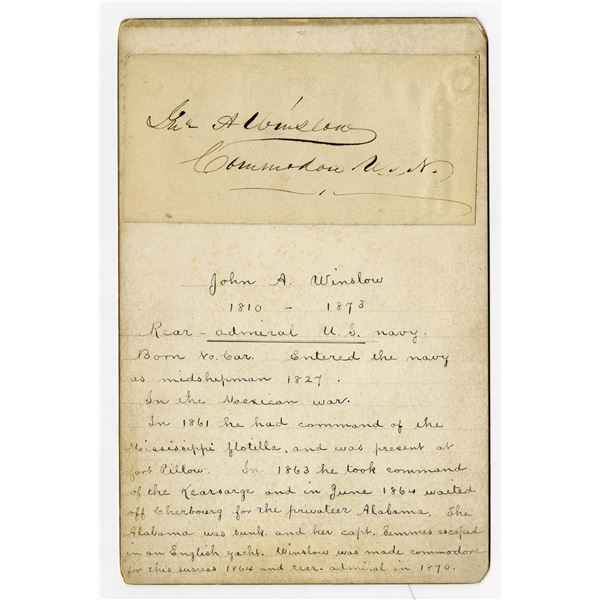 Jno A Winslow
Commodore U.S.N.
John A. Winslow
1810 - 1873
Rear-admiral U.S. navy.
Born No. Car. Entered the navy
as midshipman 1827.
In the Mexican war.
In 1861 he had command of the
Mississippi flotella, and was present at
fort Pillow. In 1863 he took command
of the Kearsarge and in June 1864 waited
off Cherbourg for the privateer Alabama. The
Alabama was sunk and her capt. Semmes escaped
in an English yacht. Winslow was made commodore
for this success 1864 and rear-admiral in 1870.